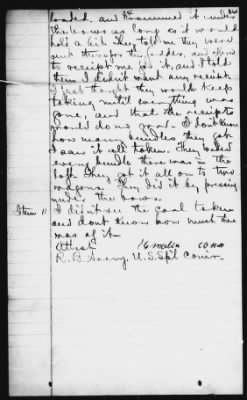 loaded, and I crammed it under
the bows as long as it would
hold a bit. They told me they were
out there for the fodder, and offered
to receipt me for it, and I told
them I didn't want any receipt
I just thought they would keep
taking until everything was
gone, and that the receipts
would do no good. I don't know
how many bundles they got
I saw it all taken. They loaded
every bundle there was in the
loft. They got it all on to two
wagons. They did it by pressing
under the bows.
Item 11 I didn't see the coal taken
and dont know how much there
was of it.
Attest
R. B. Avery, U.S. Spl Comr.